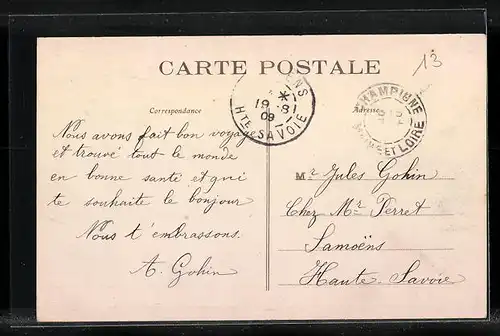 13
CARTE POSTALE
Correspondance
Adresse
ENS
19 - 8
09
Hte SAVOIE
CHAMPIGNE
MAINE ET LOIRE
Nous avons fait bon voyage
et trouvé tout le monde
en bonne santé et qui
te souhaite le bonjour
Nous t'embrassons.
A. Gohin
Mr Jules Gohin
Chez Mr Perret
Samoëns
Haute-Savoie